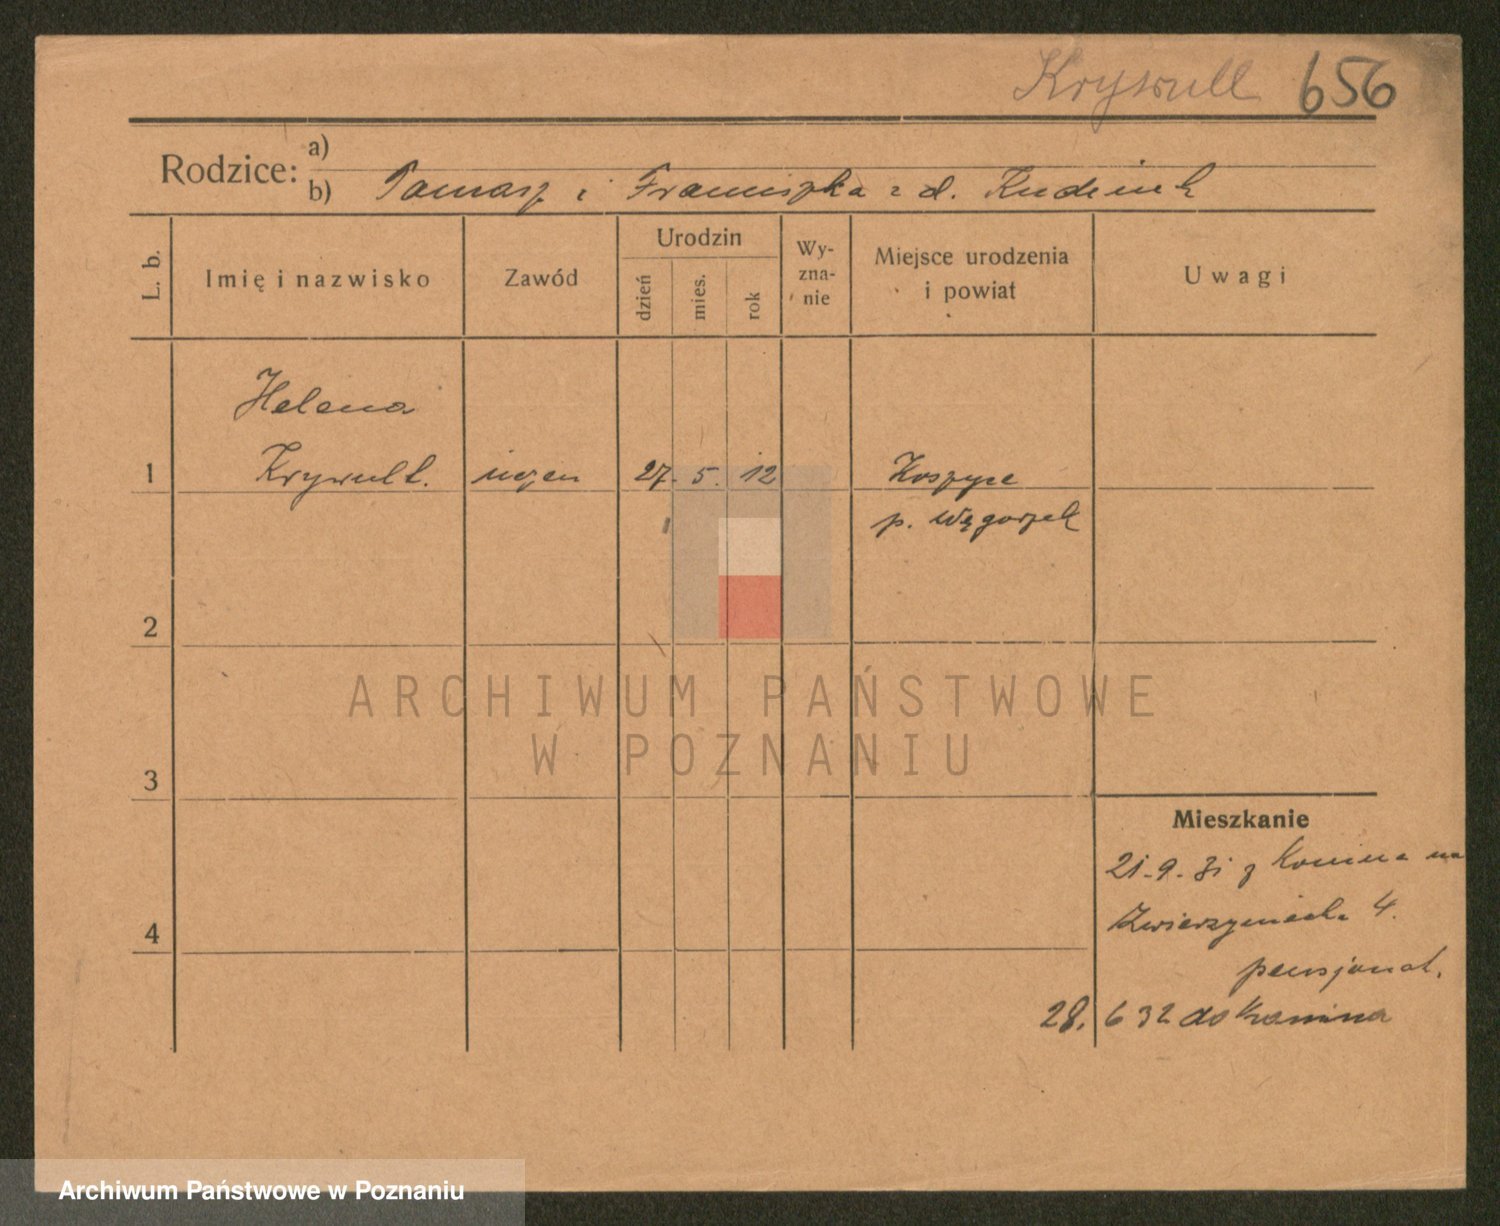 Krywult 656
Rodzice: a)
b) Tomasz i Franciszka z d.
L. b.
Imię i nazwisko
Zawód
Urodzin
dzień
mies.
rok
Wy-
zna-
nie
Miejsce urodzenia
i powiat
Uwagi
Helena
1 Krywult. uczen 27. 5. 12 Koszyce
p. Węgorzek
2
3
4
Mieszkanie
21.9.31 z Konina na
Zwierzyniecka 4.
pensjonat.
28. 6 32 do Konina
ARCHIWUM PAŃSTWOWE
W POZNANIU
Archiwum Państwowe w Poznaniu